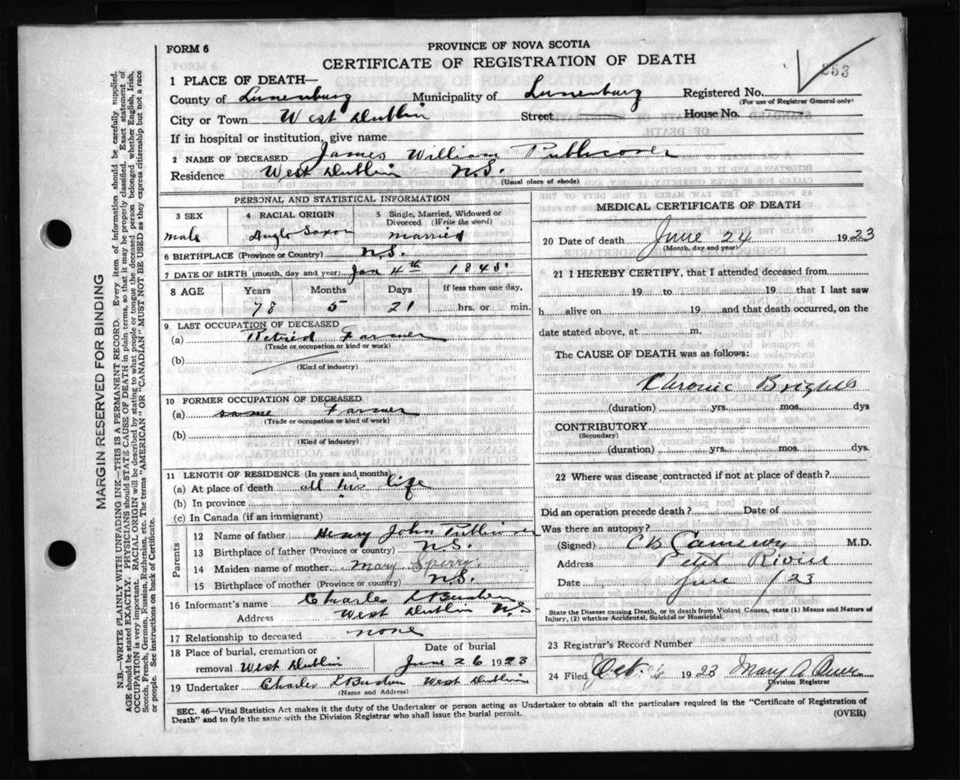 FORM 6
PROVINCE OF NOVA SCOTIA
CERTIFICATE OF REGISTRATION OF DEATH
253
1 PLACE OF DEATH—
County of Lunenburg Municipality of Lunenburg Registered No.
(For use of Registrar General only)
City or Town West Dublin Street House No.
If in hospital or institution, give name
2 NAME OF DECEASED James William Publicover
Residence West Dublin N.S.
(Usual place of abode)
PERSONAL AND STATISTICAL INFORMATION
3 SEX 4 RACIAL ORIGIN 5 Single, Married, Widowed or
Divorced (Write the word)
male Anglo Saxon married
6 BIRTHPLACE (Province or Country) N.S.
7 DATE OF BIRTH (month, day and year) Jan 4th 1845
8 AGE Years Months Days If less than one day,
78 5 21 hrs. or min.
9 LAST OCCUPATION OF DECEASED
(a) Retired Farmer
(Trade or occupation or kind or work)
(b)
(Kind of industry)
10 FORMER OCCUPATION OF DECEASED
(a) same Farmer
(Trade or occupation or kind of work)
(b)
(Kind of industry)
11 LENGTH OF RESIDENCE (In years and months)
(a) At place of death all his life
(b) In province
(c) In Canada (if an immigrant)
Parents
12 Name of father Henry John
13 Birthplace of father (Province or Country) N.S.
14 Maiden name of mother Mary Sperry
15 Birthplace of mother (Province or Country) N.S.
16 Informant's name Charles
Address West Dublin N.S.
17 Relationship to deceased none
18 Place of burial, cremation or Date of burial
removal West Dublin June 26 1923
19 Undertaker Charles West Dublin
(Name and Address)
MEDICAL CERTIFICATE OF DEATH
20 Date of death June 24 1923
(Month, day and year)
21 I HEREBY CERTIFY, that I attended deceased from
19 to 19 that I last saw
h alive on 19 and that death occurred, on the
date stated above, at m.
The CAUSE OF DEATH was as follows:
Chronic Brights
(duration) yrs. mos. dys
CONTRIBUTORY
(Secondary)
(duration) yrs. mos. dys.
22 Where was disease contracted if not at place of death?
Did an operation precede death? Date of
Was there an autopsy?
(Signed) C B Cameron M.D.
Address Petit Riviere
Date June /23
State the Disease causing Death, or in death from Violent Causes, state (1) Means and Nature of
Injury, (2) whether Accidental, Suicidal or Homicidal.
23 Registrar's Record Number
24 Filed Oct 1923 Mary A
Division Registrar
SEC. 46—Vital Statistics Act makes it the duty of the Undertaker or person acting as Undertaker to obtain all the particulars required in the "Certificate of Registration of
Death" and to fyle the same with the Division Registrar who shall issue the burial permit.
(OVER)
MARGIN RESERVED FOR BINDING
N.B.—WRITE PLAINLY WITH UNFADING INK—THIS IS A PERMANENT RECORD. Every item of Information should be carefully supplied.
AGE should be stated EXACTLY. PHYSICIANS should STATE CAUSE OF DEATH in plain terms, so that it may be properly classified. Exact statement of
OCCUPATION is very important. RACIAL ORIGIN will be described by stating to what people or tongue the deceased person belonged whether English, Irish,
Scotch, French, German, Russian, Ruthenian, etc. The terms "AMERICAN" OR "CANADIAN" MUST NOT BE USED as they express citizenship but not a race
or people. See instructions on back of Certificate.